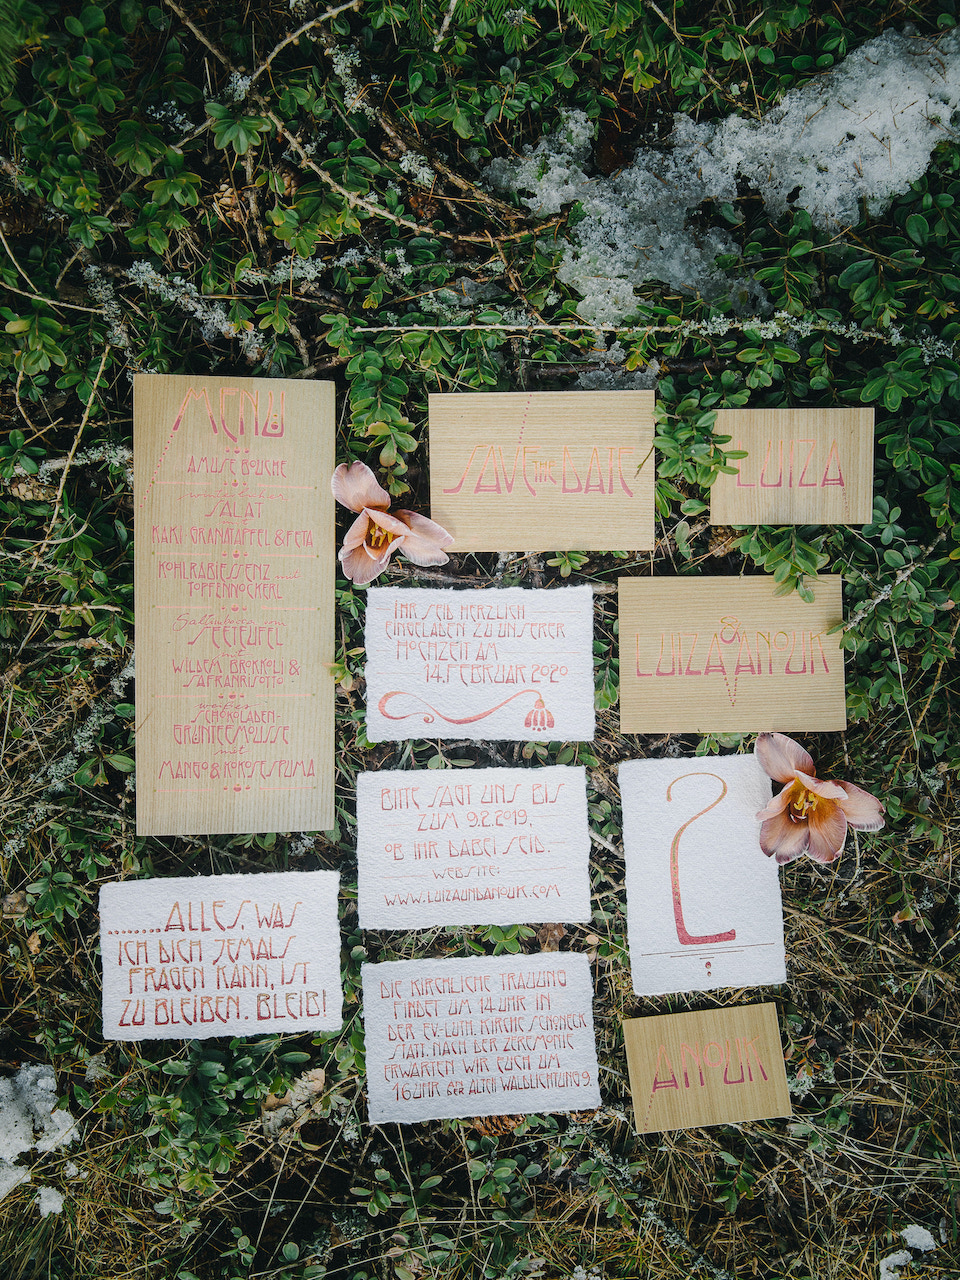 MENÜ
AMUSE BOUCHE
winterlicher
SALAT
mit
KAKI, GRANATAPFEL & FETA
KOHLRABIESSENZ mit
TOPFENNOCKERL
Saltimbocca vom
SEETEUFEL
mit
WILDEM BROKKOLI &
SAFRANRISOTTO
weißes
SCHOKOLADEN-
GRÜNTEEMOUSSE
mit
MANGO & KOKOSESPUMA
SAVE THE DATE
LUIZA
IHR SEID HERZLICH
EINGELADEN ZU UNSERER
HOCHZEIT AM
14. FEBRUAR 2020
LUIZA & ANOUK
BITTE SAGT UNS BIS
ZUM 9.2.2019,
OB IHR DABEI SEID.
WEBSITE:
WWW.LUIZAUNDANOUK.COM
2
.......ALLES, WAS
ICH DICH JEMALS
FRAGEN KANN, IST
ZU BLEIBEN. BLEIB!
DIE KIRCHLICHE TRAUUNG
FINDET UM 14 UHR IN
DER EV.-LUTH. KIRCHE SCHÖNECK
STATT. NACH DER ZEREMONIE
ERWARTEN WIR EUCH UM
16 UHR AN DER ALTEN WALDLICHTUNG 9.
ANOUK